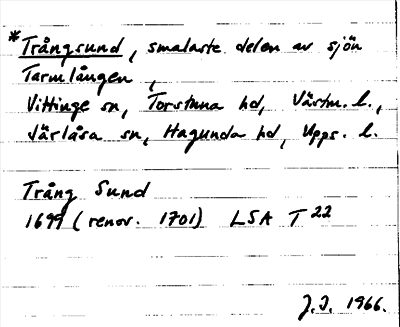 *Trångsund, smalaste delen av sjön
Tarmlången,
Vittinge sn, Torstuna hd, Västm. l.,
Järlåsa sn, Hagunda hd, Upps. l.
Trång Sund
1699 (renov. 1701) LSA T 22
J.I. 1966.